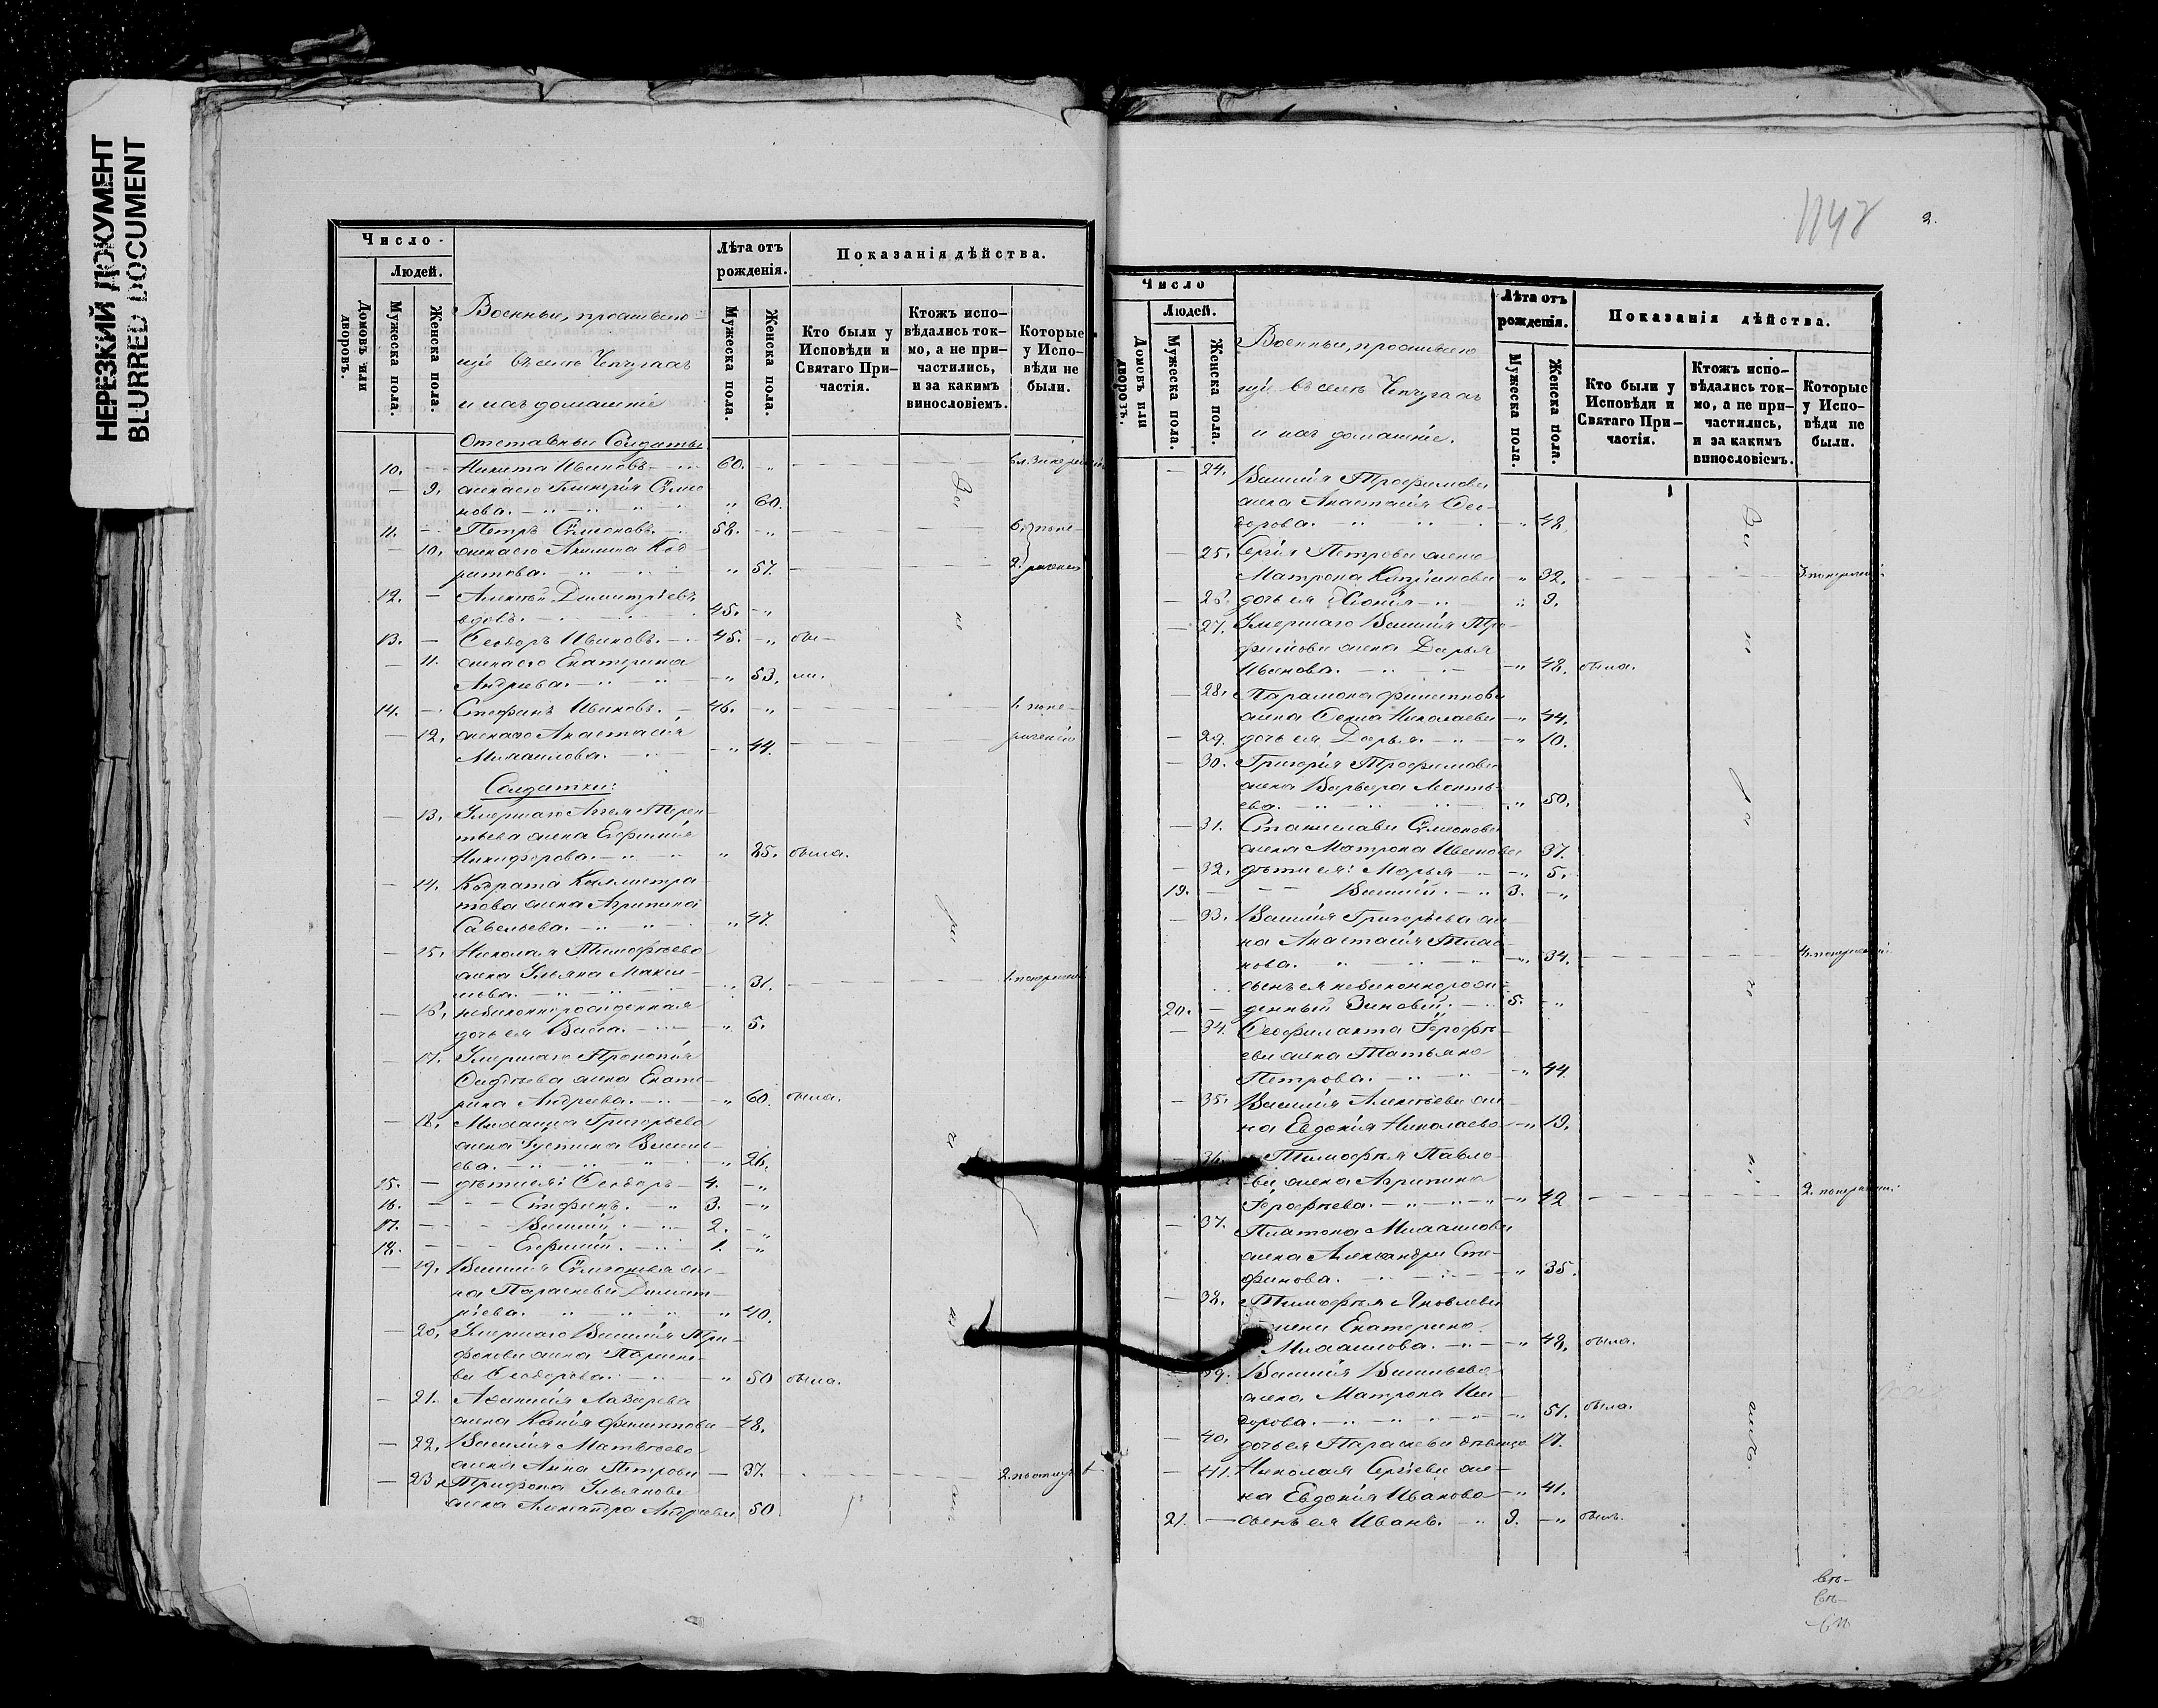 НЕРЕЗКИЙ ДОКУМЕНТ
BLURRED DOCUMENT
Число
Людей.
Домовъ или дворовъ.
Мужеска пола.
Женска пола.
Военные, проживаю
щіе въ селѣ
и ихъ домашніе
Лѣта отъ рожденія.
Мужеска пола.
Женска пола.
Показанія дѣйства.
Кто были у Исповѣди и Святаго Причастія.
Ктожъ исповѣдались токмо, а не причастились, и за какимъ винословіемъ.
Которые у Исповѣди не были.
Отставные Солдаты
10. Никита Ивановъ 60.
9. жена его Гликерія Симео
нова. 60.
11. Петръ Симеоновъ. 58.
10. жена его Акилина Код
ратова. 57.
12. Алексѣй Димитріевъ
вдовъ. 45.
13. Ѳеодоръ Ивановъ. 45. бы-
11. жена его Екатерина
Андреева. 53. ли.
14. Стефанъ Ивановъ. 46.
12. жена его Анастасія
Михаилова. 44.
Солдатки:
13. Умершаго
жена Евфимія
Никифорова. 25. была.
14. Кодрата Каллистра
това жена Агрипина
Савельева. 47.
15. Николая Тимофѣева
жена Ульяна Макси-
мова. 31.
16. незаконнорожденная
дочь ея Васса. 5.
17. Умершаго Прокопія
жена Екате-
рина Андреева. 60. была.
18. Михаила Григорьева
жена Устина Василь-
ева. 26.
15. дѣти ея: Ѳеодоръ 4.
16. Стефанъ. 3.
17. Василій. 2.
18. Евфимій. 1.
19. Василія Симеонова же-
на Параскева Димит-
ріева. 40.
20. Умершаго Василія Три-
фонова жена Параске-
ва Ѳеодорова. 50 была.
21. Аѳанасія Лазарева
жена Ксенія Филиппова 48.
22. Василія Матвѣева
жена Анна Петрова 37.
23. Трифона Ульянова
жена Александра Андреева 50
2.
Число
Людей.
Домовъ или дворовъ.
Мужеска пола.
Женска пола.
Военные, проживаю
щіе въ селѣ
и ихъ домашніе.
Лѣта отъ рожденія.
Мужеска пола.
Женска пола.
Показанія дѣйства.
Кто были у Исповѣди и Святаго Причастія.
Ктожъ исповѣдались токмо, а не причастились, и за какимъ винословіемъ.
Которые у Исповѣди не были.
24. Василія Трофимова
жена Анастасія Ѳео-
дорова. 42.
25. Сергія Петрова жена
Матрона Капріанова 32.
26. дочь ея Хіонія 9.
27. Умершаго Василія Тро-
фимова жена Дарья
Иванова. 48. была.
28. Парамона Филиппова
жена Ѳекла Николаева 44.
29. дочь ея Дарья. 10.
30. Григорія Трофимова
жена Варвара Леонть
ева. 50.
31. Станислава Симеонова
жена Матрона Иванова 37.
32. дѣти ея: Марья 5.
19. Василій. 3.
33. Василія Григорьева же
на Анастасія
нова. 34.
сынъ ея незаконнорож-
20. денный Зиновій. 5.
34. Ѳеофилакта Ерофѣ-
ева жена Татьяна
Петрова. 44.
35. Василія Алексѣева же
на Евдокія Николаева 19.
36. Тимофѣя Павло
ва жена Агрипина
Ерофѣева. 42
37. Платона Михаилова
жена Александра Сте-
фанова. 35.
38. Тимофѣя Яковлева
жена Екатерина
Михаилова. 48. была.
39. Василія Васильева
жена Матрона Иси-
дорова. 51. была.
40. дочь ея Параскева дѣвица 17.
41. Николая Сергіева же-
на Евдокія Иванова 41.
21. сынъ ея Иванъ. 9. былъ.